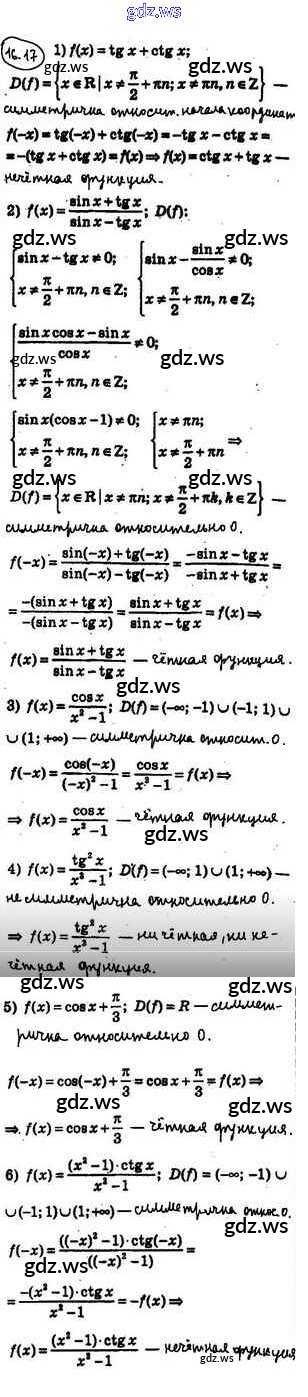 gdz.ws
16.17 1) f(x) = tg x + ctg x;
D(f) = {x ∈ R | x ≠ π/2 + πn; x ≠ πn, n ∈ Z} —
симметрична относит. начала координат
gdz.ws gdz.ws
f(-x) = tg(-x) + ctg(-x) = -tg x - ctg x =
= -(tg x + ctg x) = f(x) ⇒ f(x) = ctg x + tg x —
нечётная функция.
gdz.ws gdz.ws
2) f(x) = (sin x + tg x)/(sin x - tg x); D(f):
gdz.ws gdz.ws
{sin x - tg x ≠ 0; {sin x - sin x/cos x ≠ 0;
x ≠ π/2 + πn, n ∈ Z; x ≠ π/2 + πn, n ∈ Z;
gdz.ws gdz.ws
{(sin x cos x - sin x)/cos x ≠ 0;
gdz.ws
x ≠ π/2 + πn, n ∈ Z;
gdz.ws gdz.ws
{sin x(cos x - 1) ≠ 0; {x ≠ πn;
x ≠ π/2 + πn, n ∈ Z; x ≠ π/2 + πn ⇒
gdz.ws gdz.ws
D(f) = {x ∈ R | x ≠ πn; x ≠ π/2 + πk, k ∈ Z} —
симметрична относительно 0.
gdz.ws gdz.ws
f(-x) = (sin(-x) + tg(-x))/(sin(-x) - tg(-x)) = (-sin x - tg x)/(-sin x + tg x) =
gdz.ws gdz.ws
= -(sin x + tg x)/-(sin x - tg x) = (sin x + tg x)/(sin x - tg x) = f(x) ⇒
f(x) = (sin x + tg x)/(sin x - tg x) — чётная функция.
gdz.ws
3) f(x) = cos x/(x² - 1); D(f) = (-∞; -1) ∪ (-1; 1) ∪
∪ (1; +∞) — симметрична относит. 0.
gdz.ws gdz.ws
f(-x) = cos(-x)/((-x)² - 1) = cos x/(x² - 1) = f(x) ⇒
gdz.ws gdz.ws
⇒ f(x) = cos x/(x² - 1) — чётная функция.
gdz.ws gdz.ws
4) f(x) = tg² x/(x³ - 1); D(f) = (-∞; 1) ∪ (1; +∞) —
не симметрична относительно 0.
gdz.ws gdz.ws
⇒ f(x) = tg² x/(x³ - 1) — ни чётная, ни не-
чётная функция.
gdz.ws gdz.ws
5) f(x) = cos x + π/3; D(f) = R — симмет-
рична относительно 0.
gdz.ws gdz.ws
f(-x) = cos(-x) + π/3 = cos x + π/3 = f(x) ⇒
gdz.ws gdz.ws
⇒ f(x) = cos x + π/3 — чётная функция.
gdz.ws gdz.ws
6) f(x) = (x² - 1) · ctg x/(x² - 1); D(f) = (-∞; -1) ∪
∪ (-1; 1) ∪ (1; +∞) — симметрична относ. 0.
gdz.ws gdz.ws
f(-x) = ((-x)² - 1) · ctg(-x)/((-x)² - 1) =
gdz.ws gdz.ws
= -(x² - 1) · ctg x/(x² - 1) = -f(x) ⇒
gdz.ws gdz.ws
f(x) = (x² - 1) · ctg x/(x² - 1) — нечётная функция
gdz.ws